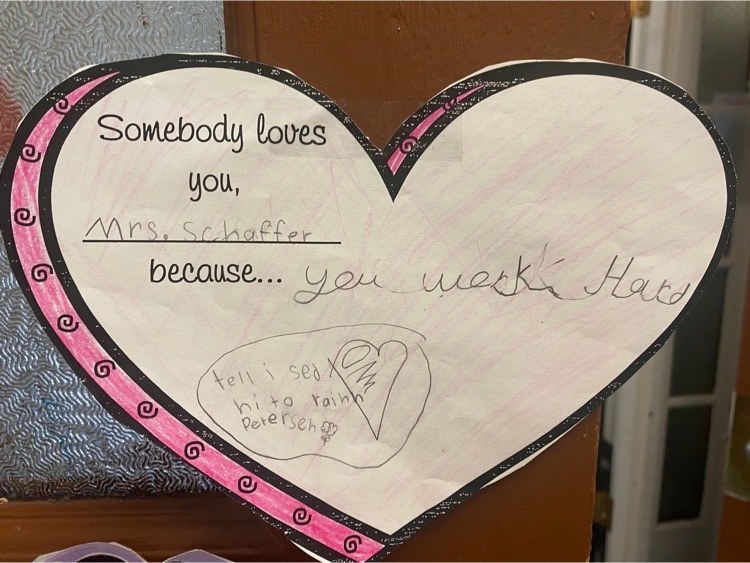 Somebody loves
you,
Mrs. Schaffer
because... you work Hard
tell i sed
hi to rainn
Petersen